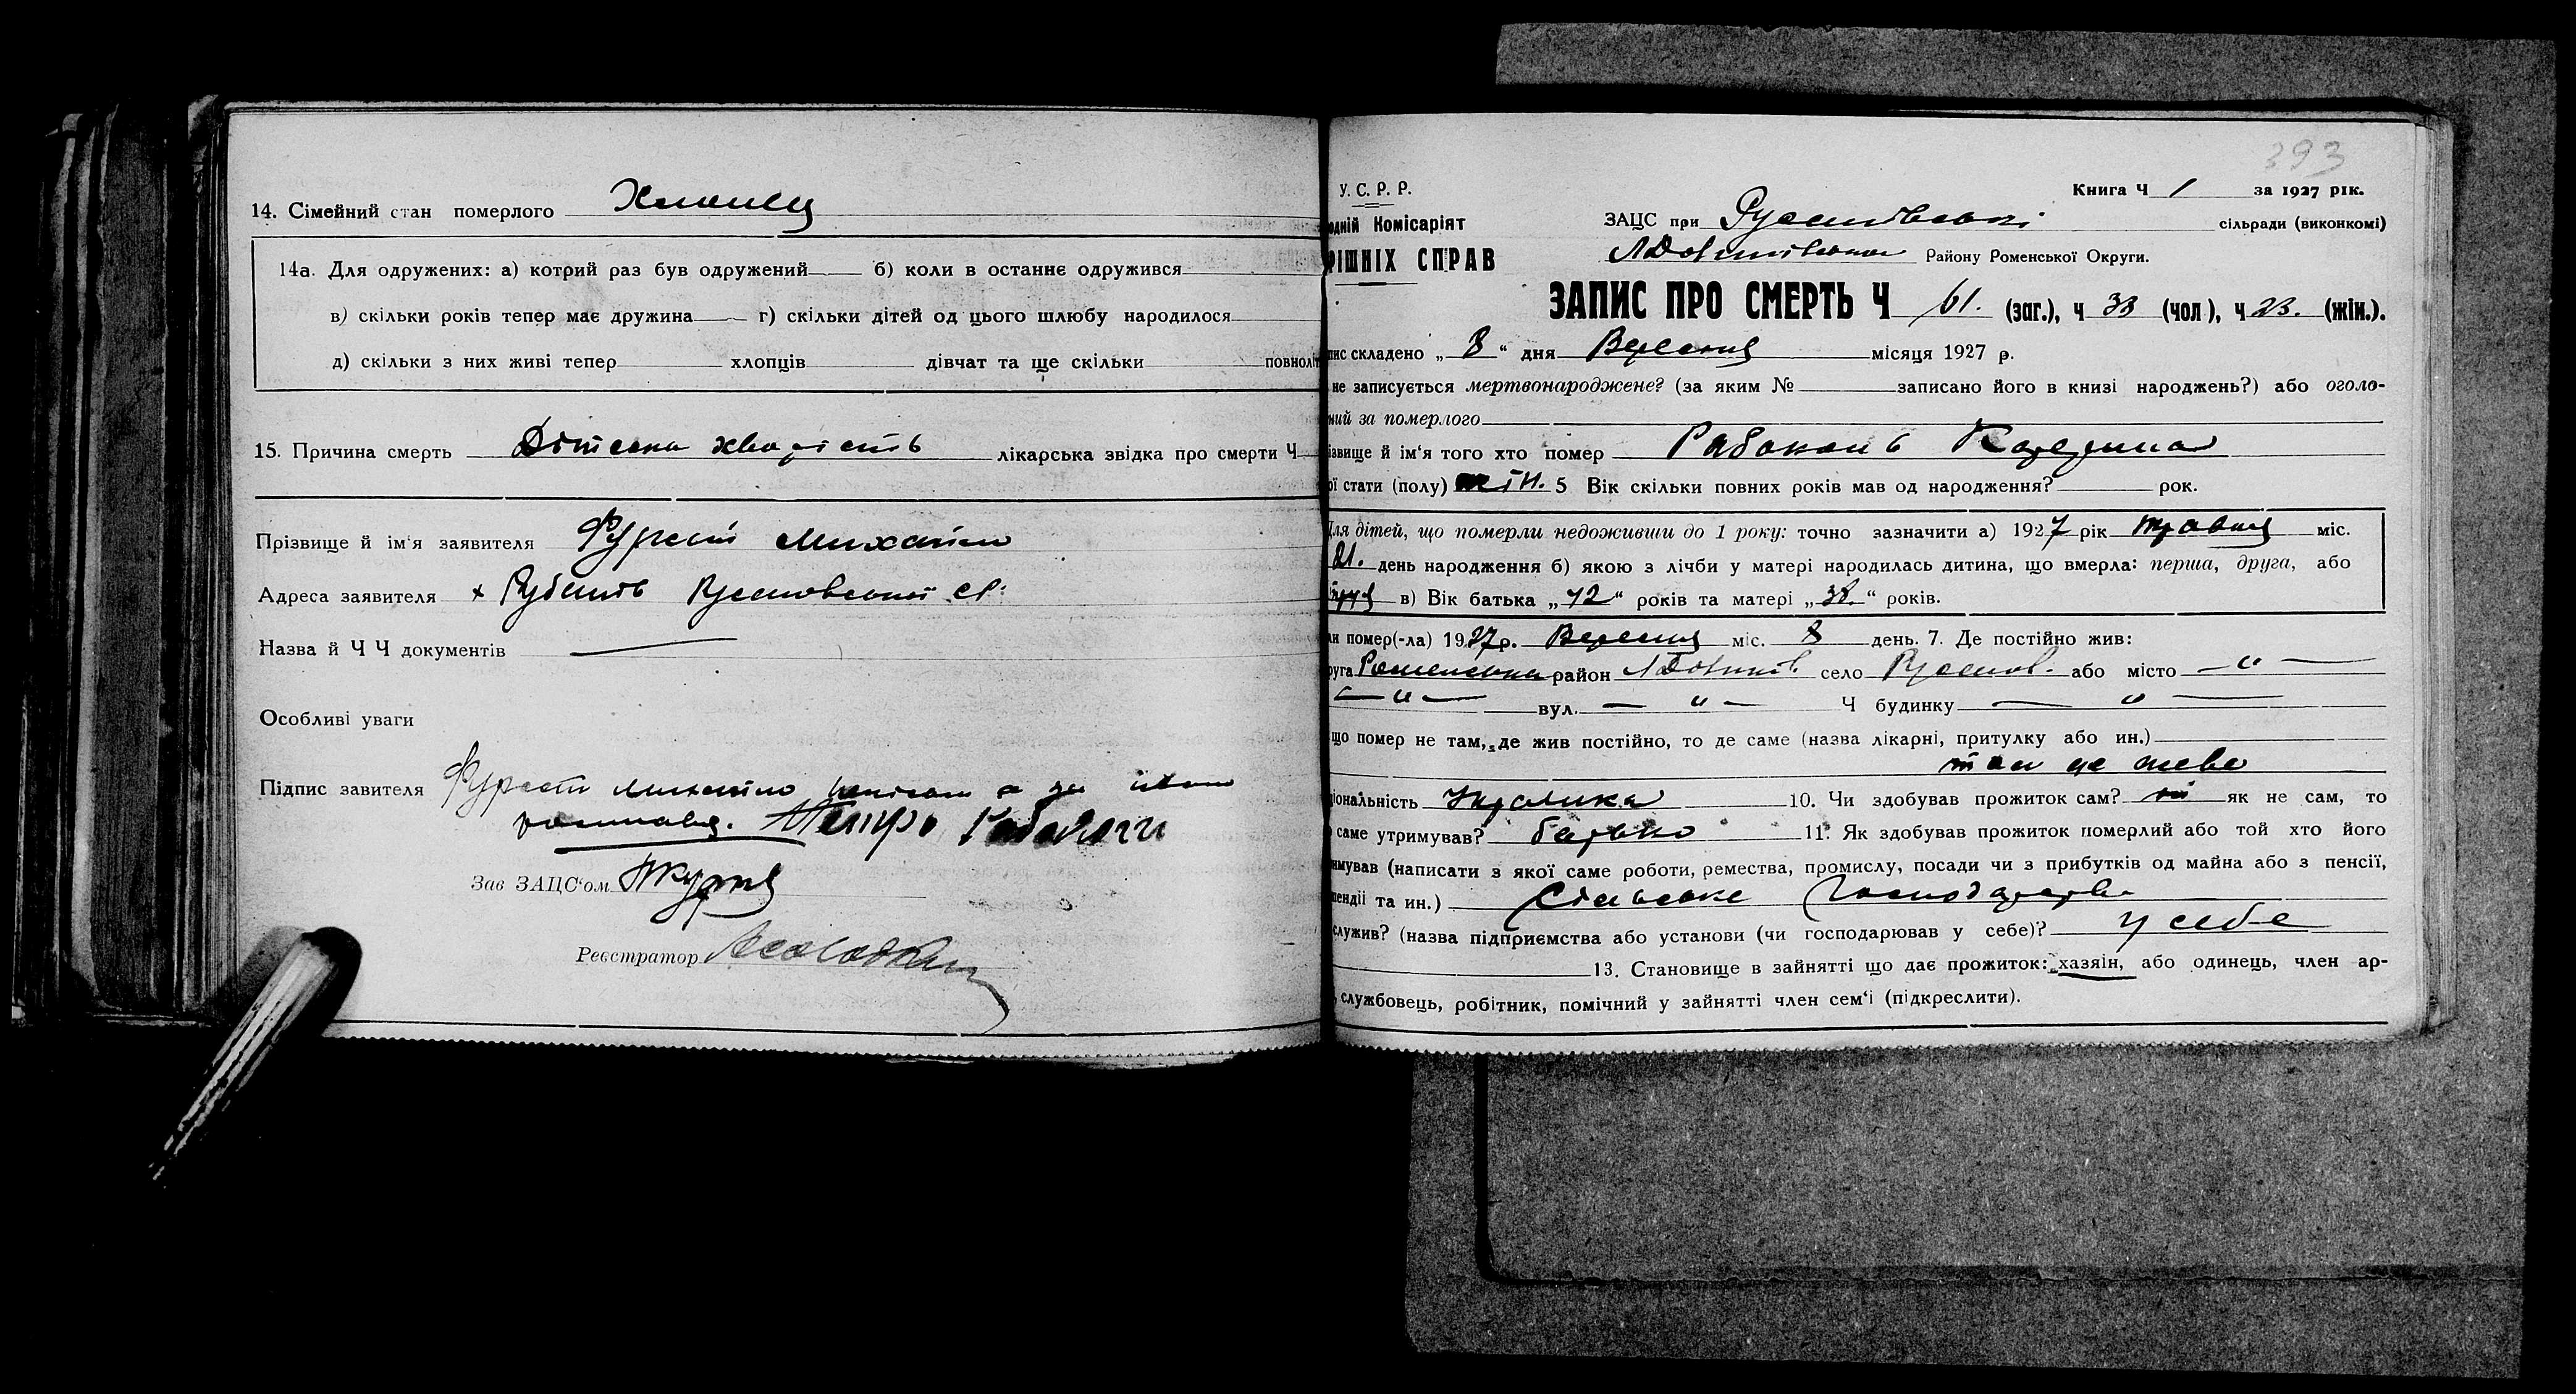 14. Сімейний стан померлого Хлопець
14а. Для одружених: а) котрий раз був одружений б) коли в останнє одружився
в) скільки років тепер має дружина г) скільки дітей од цього шлюбу народилося
д) скільки з них живі тепер хлопців дівчат та ще скільки повноліт
15. Причина смерть Дітська хворість лікарська звідка про смерти Ч
Прізвище й ім'я заявителя Михайло
Адреса заявителя х
Назва й Ч Ч документів —
Особливі уваги
Підпис завителя Михайло а за
Петро
Зав ЗАЦС'ом
Реєстратор
393
У. С. Р. Р.
Книга Ч 1 за 1927 рік.
одній Комісаріят
ЗАЦС при сільради (виконкомі)
РІШНІХ СПРАВ
Району Роменської Округи.
ЗАПИС ПРО СМЕРТЬ Ч 61. (заг.), ч 33 (чол), ч 23. (жін.).
пис складено „ 8 “ дня Вересня місяця 1927 р.
не записується мертвонароджене? (за яким № записано його в книзі народжень?) або оголо-
ний за померлого
ізвище й ім'я того хто помер Рабоконь
ої стати (полу) жін. 5 Вік скільки повних років мав од народження? рок.
Для дітей, що померли недоживши до 1 року: точно зазначити а) 1927 рік травня міс.
21. день народження б) якою з лічби у матері народилась дитина, що вмерла: перша, друга, або
в) Вік батька „ 42 “ років та матері „ 38. “ років.
ли помер(-ла) 1927р. Вересня міс. 8 день. 7. Де постійно жив:
руга Роменська район село або місто — „ —
— „ — вул. — „ — Ч будинку — „ —
що помер не там, де жив постійно, то де саме (назва лікарні, притулку або ин.)
там це жеве
ціональність Українка 10. Чи здобував прожиток сам? ні як не сам, то
саме утримував? батько 11. Як здобував прожиток померлий або той хто його
имував (написати з якої саме роботи, ремества, промислу, посади чи з прибутків од майна або з пенсії,
пендії та ин.) Сільське Господарство
служив? (назва підприємства або установи (чи господарював у себе)? у себе
13. Становище в зайнятті що дає прожиток: хазяїн, або одинець, член ар-
, службовець, робітник, помічний у зайнятті член сем'ї (підкреслити).